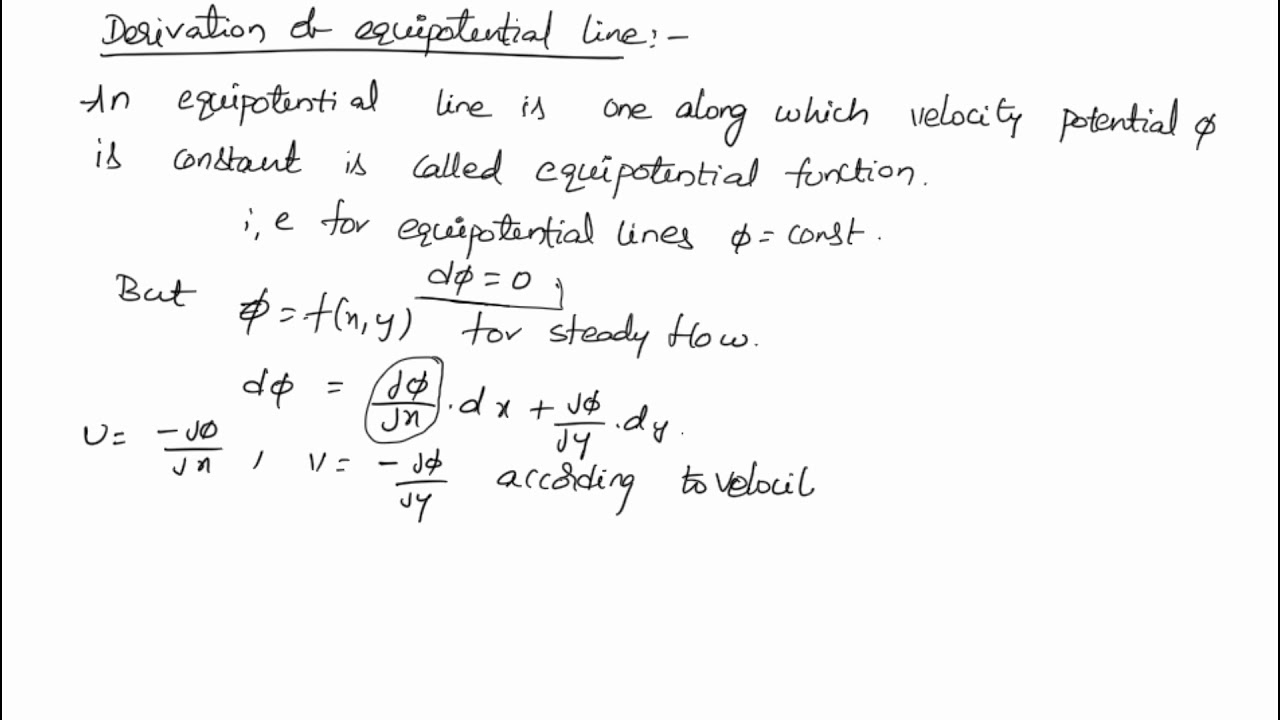 Derivation of equipotential line:-
An equipotential line is one along which velocity potential φ
is constant is called equipotential function.
i,e for equipotential lines φ = const.
dφ = 0,
But φ = f(x,y) for steady flow.
dφ = ∂φ/∂x . dx + ∂φ/∂y . dy.
U = -∂φ/∂x , V = -∂φ/∂y according to velocit